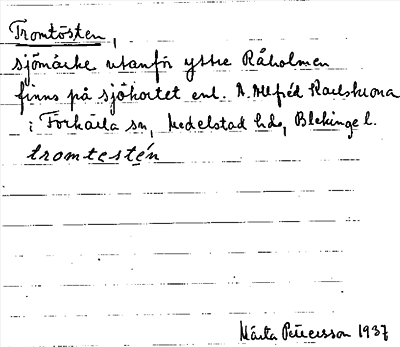 Tromtösten,
sjömärke utanför yttre Råholmen
finns på sjökortet enl. A. Alfréd Karlskrona
i Förkärla sn, Medelstad hd, Blekinge l.
tromtestén
Märta Petersson 1937